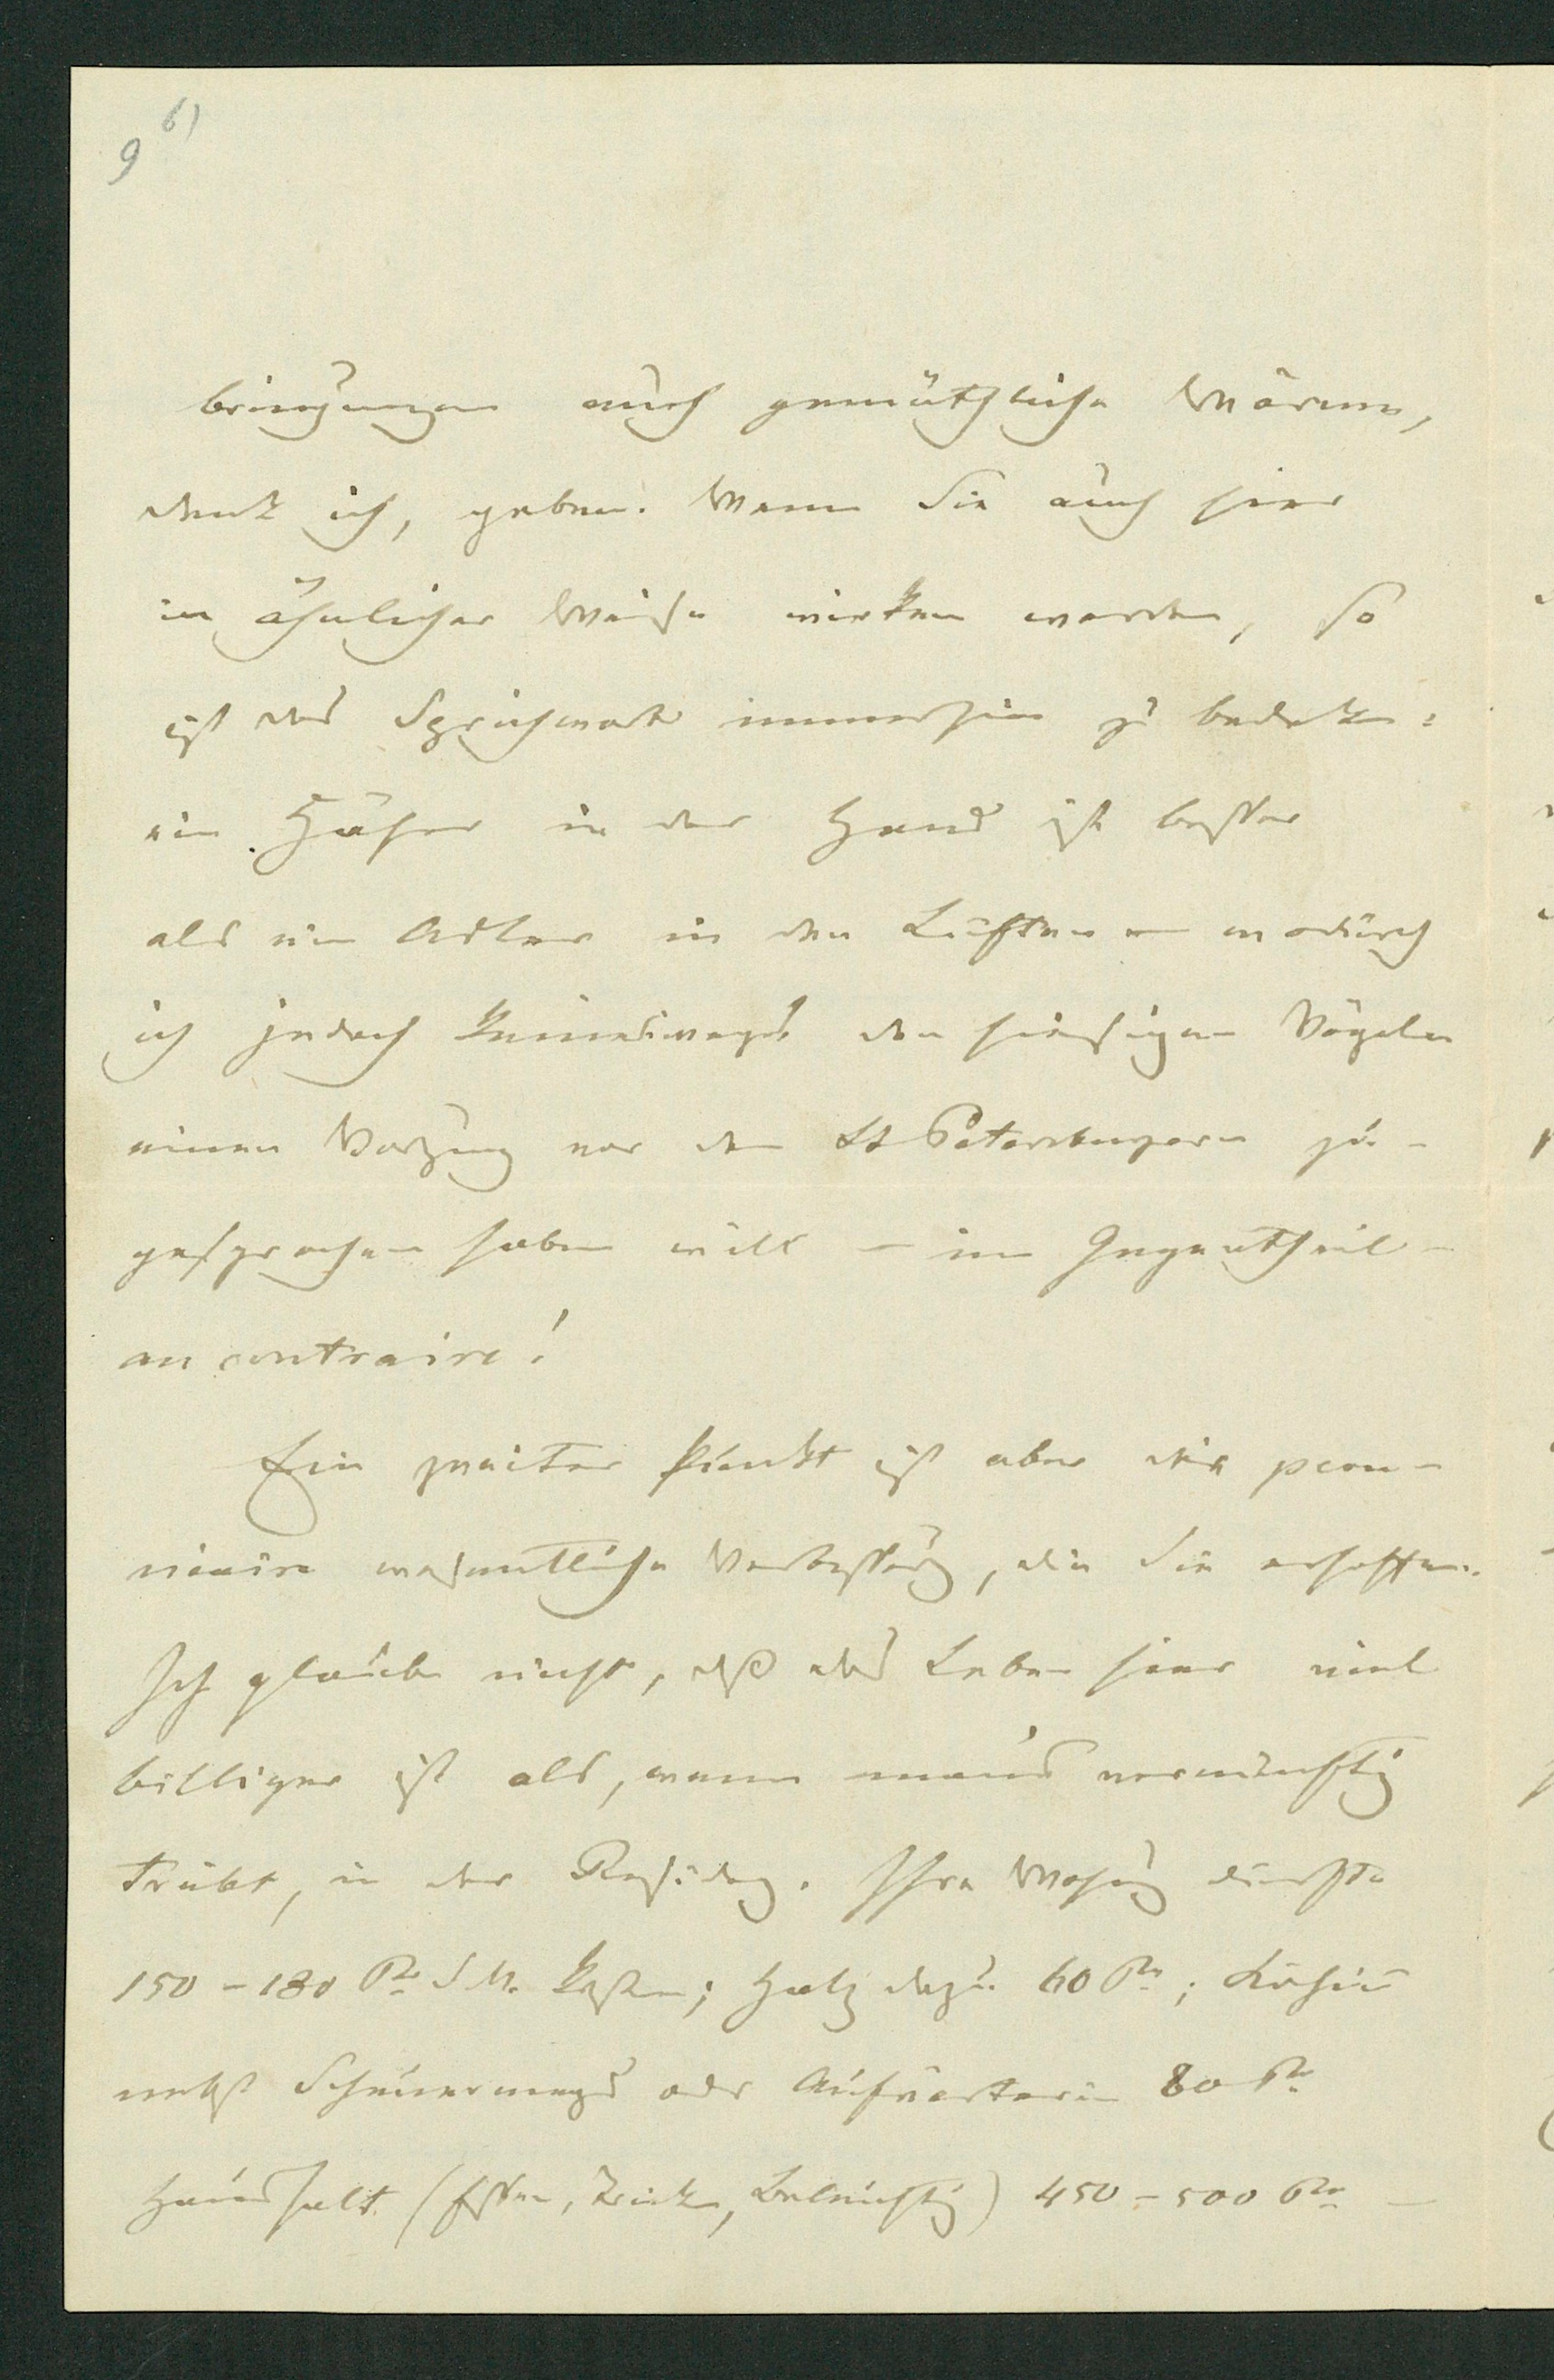 6)
9
bringungen auch gemüthliche Wärme,
denk ich, geben. Wenn Sie auch hier
in ähnlicher Weise wirken werden, so
ist das Sprichwort immerhin zu bedenken:
ein Häher in der Hand ist besser
als ein Adler in den Lüften – wodurch
ich jedoch keineswegs den hiesigen Vögeln
einen Vorzug vor den St Petersburgern zu-
gesprochen haben will – im Gegentheil –
au contraire!
Ein zweiter Punkt ist aber die pecu-
niaire wesentliche Verbesserung, die Sie erhoffen.
Ich glaube nicht, daß das Leben hier viel
billiger ist als, wenn man's vernünftig
treibt, in der Residenz. Ihre Wohnung dürfte
150 – 180 Rbl S. M. kosten; Holz dazu 60 Rbl; Köchin
nebst Scheuermagd oder Aufwärterin 80 Rbl
Haushalt (Essen, Trinken, Beleuchtung) 450 – 500 Rbl –